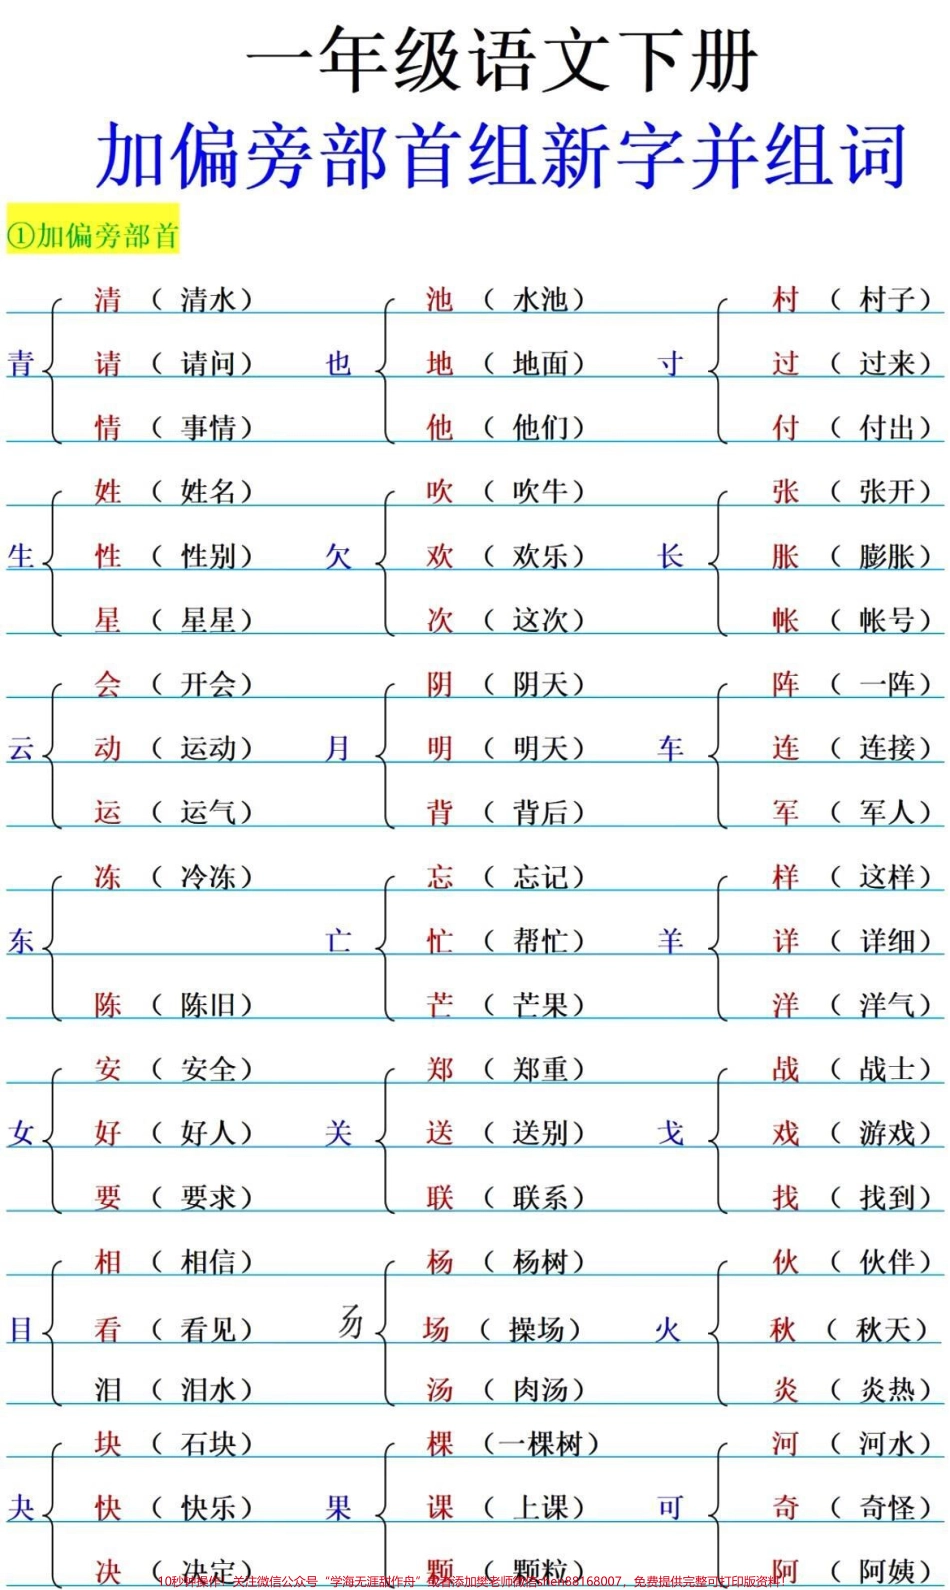 一年级语文下册
加偏旁部首组新字并组词
①加偏旁部首
清（清水） 池（水池） 村（村子）
青 请（请问） 也 地（地面） 寸 过（过来）
情（事情） 他（他们） 付（付出）
姓（姓名） 吹（吹牛） 张（张开）
生 性（性别） 欠 欢（欢乐） 长 胀（膨胀）
星（星星） 次（这次） 帐（帐号）
会（开会） 阴（阴天） 阵（一阵）
云 动（运动） 月 明（明天） 车 连（连接）
运（运气） 背（背后） 军（军人）
冻（冷冻） 忘（忘记） 样（这样）
东 亡 忙（帮忙） 羊 详（详细）
陈（陈旧） 芒（芒果） 洋（洋气）
安（安全） 郑（郑重） 战（战士）
女 好（好人） 关 送（送别） 戈 戏（游戏）
要（要求） 联（联系） 找（找到）
相（相信） 杨（杨树） 伙（伙伴）
目 看（看见） 𠃓 场（操场） 火 秋（秋天）
泪（泪水） 汤（肉汤） 炎（炎热）
块（石块） 棵（一棵树） 河（河水）
夬 快（快乐） 果 课（上课） 可 奇（奇怪）
决（决定） 颗（颗粒） 阿（阿姨）
10秒钟操作：关注微信公众号“学海无涯甜作舟”或者添加樊老师微信shen88168007，免费提供完整可打印版资料！